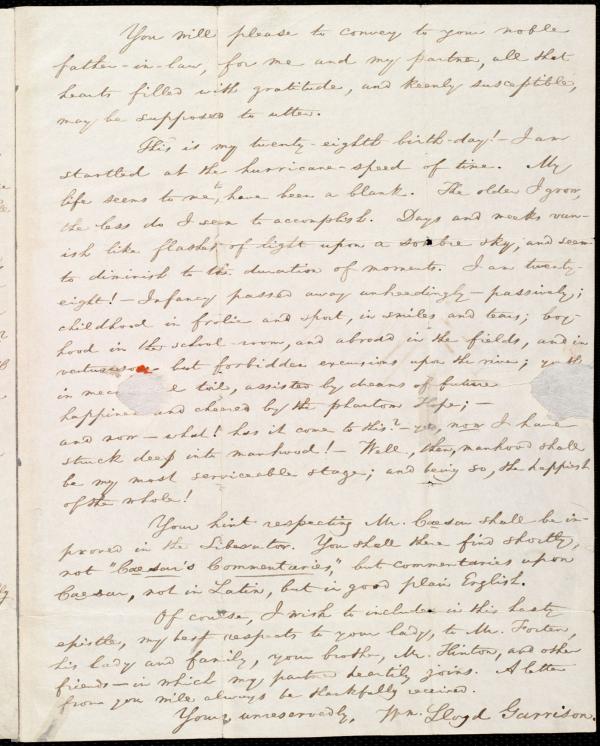 You will please to convey to your noble
father-in-law, for me and my partner, all that
hearts filled with gratitude, and keenly susceptible,
may be supposed to utter.
This is my twenty-eighth birth-day! – I am
startled at the hurricane-speed of time. My
life seems to me to have been a blank. The older I grow,
the less do I seem to accomplish. Days and weeks van-
ish like flashes of light upon a sombre sky, and seem
to diminish to the duration of moments. I am twenty-
eight! – Infancy passed away unheedingly – passively;
childhood in frolic and sport, in smiles and tears; boy-
hood in the school-room, and abroad in the fields, and in
but forbidden excursions upon the river; youth
in toil, assisted by dreams of future
happiness and cheered by the phantom Hope; –
and now – what! has it come to this? – yes, now I have
struck deep into manhood! – Well, then, manhood shall
be my most serviceable stage; and being so, the happiest
of the whole!
Your hint respecting Mr. Cæsar shall be im-
proved in the Liberator. You shall there find shortly,
not "Cæsar's Commentaries," but commentaries upon
Cæsar, not in Latin, but in good plain English.
Of course, I wish to include in this hasty
epistle, my best respects to your lady, to Mr. Forten,
his lady and family, your brother, Mr. Hinton, and other
friends – in which my partner heartily joins. A letter
from you will always be thankfully received.
Yours, unreservedly, Wm. Lloyd Garrison.